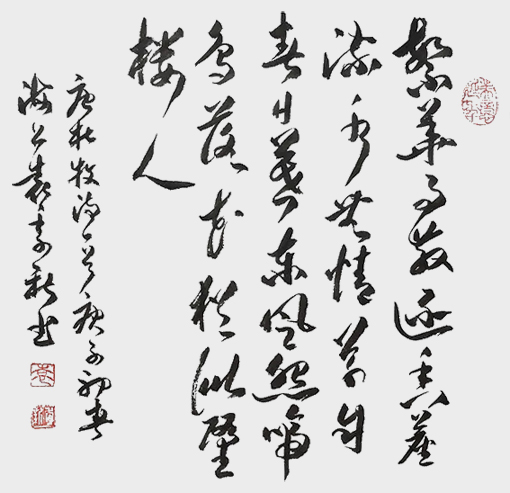 繁華事散逐香塵
流水無情草自
春日暮東風怨啼
鳥落花猶似墜
樓人
唐杜牧詩一首庚子初春
袁書